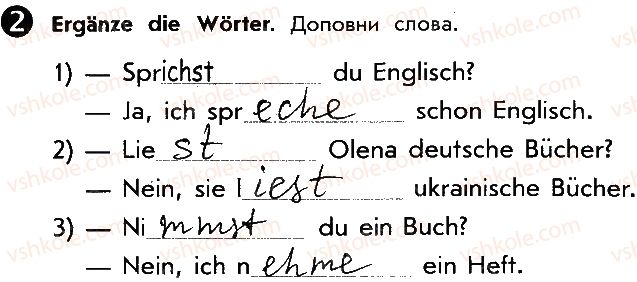 2 Ergänze die Wörter. Доповни слова.
1) — Sprichst du Englisch?
— Ja, ich spreche schon Englisch.
2) — Liest Olena deutsche Bücher?
— Nein, sie liest ukrainische Bücher.
3) — Nimmst du ein Buch?
— Nein, ich nehme ein Heft.
vshkole.com